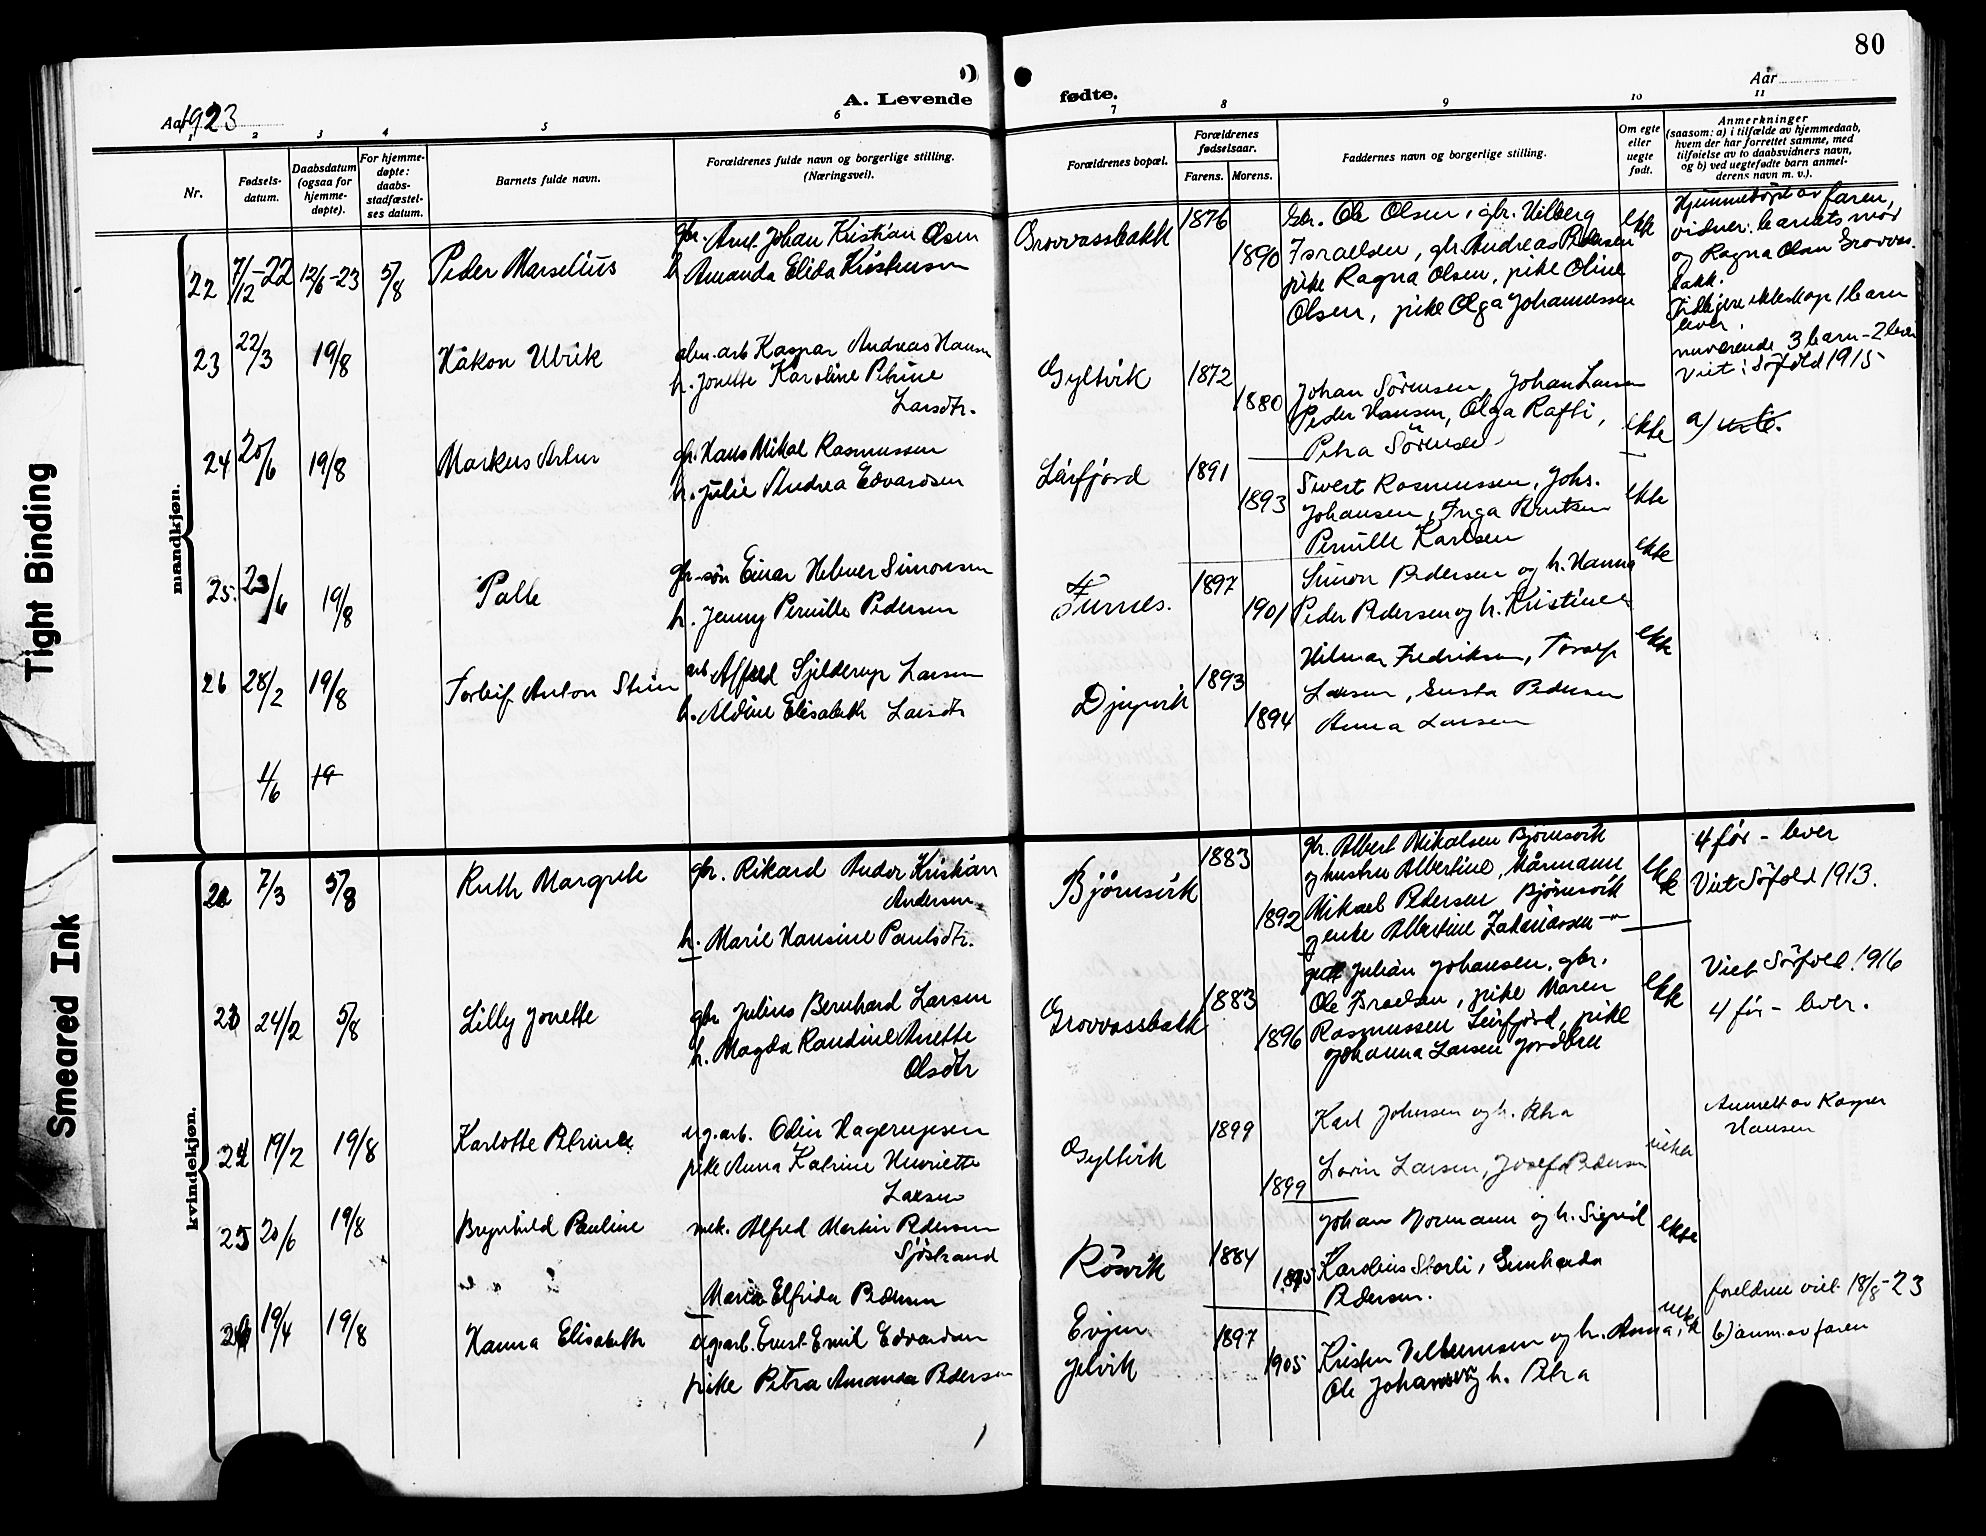 80
Aar 1923
A. Levende fødte.
Aar
1 2 3 4 5 6 7 8 9 10 11
Nr.
Fødsels-datum.
Daabsdatum (ogsaa for hjemme-døpte).
For hjemme-døpte: daabs-stadfæstel-ses datum.
Barnets fulde navn.
Forældrenes fulde navn og borgerlige stilling. (Næringsvei).
Forældrenes bopæl.
Forældrenes fødselsaar.
Farens. Morens.
Faddernes navn og borgerlige stilling.
Om egte eller uegte født.
Anmerkninger
(saasom: a) i tilfælde av hjemmedaab, hvem der har forrettet samme, med tilføielse av to daabsvidners navn, og b) ved uegtefødte barn anmel-derens navn m. v.).
mandkjøn.
22 7/12-22 12/6-23 5/8 Peder Marselius
gbr. Arnt Johan Kristian Olsen
h. Amanda Elida Kristensen
Grovvassbakk 1876 1890
Gbr. Ole Olsen, gbr. Vilberg
Israelsen, gbr Andreas Pedersen
pike Ragna Olsen, pike Oline
Olsen, pike Olga Johannessen
ekte
Hjemmedøpt av faren,
vidner: barnets mor
og Ragna Olsen Grovvas-
bakk.
Tidligere ekteskap 1 barn
lever.
nuværende 3 barn - 2 lever
Viet: Sørfold 1915
23 22/3 19/8 Håkon Ulrik
alm. arb Kaspar Andreas Hansen
h. Jonette Karoline Petrine
Larsdtr.
Gyltvik 1872 1880
Johan Sørensen, Johan Larsen
Peder Hansen, Olga Rafti,
Petra Sørensen
ekte
a)
24 20/6 19/8 Markus Artur
gbr. Hans Mikal Rasmussen
h. Julie Andrea Edvardsen
Leirfjord 1891 1893
Sivert Rasmussen, Johs.
Johansen, Inga Berntsen
Pernille Karlsen
ekte
25. 23/6 19/8 Palle
gbr-søn Einar Helmer Simonsen
h. Jenny Pernille Pedersen
Furnes. 1897 1901
Simon Pedersen og h. Hanna
Peder Pedersen og h. Kristine
ekte
26 28/2 19/8 Torleif Anton Stein
arb Alfred Gjelderup Larsen
h. Aldine Elisabeth Larsdtr
Djupvik 1893 1894
Hilmar Fredriksen, Toralf
Larsen, Gusta Pedersen
Anna Larsen
ekte
4/6 19
kvindekjøn.
22 7/3 5/8 Ruth Margrete
gbr. Rikard Ander Kristian
Andersen
h. Marie Hansine Paulsdtr.
Bjørnsvik 1883 1892
gbr. Albert Mikalsen Bjørnsvik
og hustru Albertine, Mårmann
Mikael Pedersen Bjørnsvik
og enke Albertine Zakariassen -"-
ekte
4 før - lever
Viet Sørfold 1913.
23 24/2 5/8 Lilly Jonette
gbr Julius Bernhard Larsen
h. Magda Randine Anette
Olsdtr
Grovvassbakk 1883 1896
gutt Julian Johansen, gbr.
Ole Israelsen, pike Maren
Rasmussen Leirfjord, pike
Johanna Larsen Jordbru
ekte
Viet Sørfold 1916
4 før - lever.
24 19/2 19/8 Karlotte Petrine
ug. arb. Odin Hagerupsen
pike Anna Katrine Henriette
Larsen
Gyltvik 1899 1899
Karl Johansen og h. Petra
Lorin Larsen, Josefa Pedersen
uekte
Anmeldt av Kasper
Hansen
25 20/6 19/8 Brynhild Pauline
mek. Alfred Martin Pedersen
Sjøstrand
Maria Elfrida Pedersen
Røsvik 1884 1895
Johan Normann og h. Sigrid
Karolius Storli, Gunharda
Pedersen.
ekte
26 19/4 19/8 Hanna Elisabeth
ug. arb. Ernst Emil Edvardsen
pike Petra Amanda Pedersen
Evjen
Jelvik
1897 1905
Kristen Valbumsen og h. Anna,
Ole Johansen og h. Petra
uekte
foreldrene viet 18/8-23
b) anm. av faren
Tight Binding
Smeared Ink